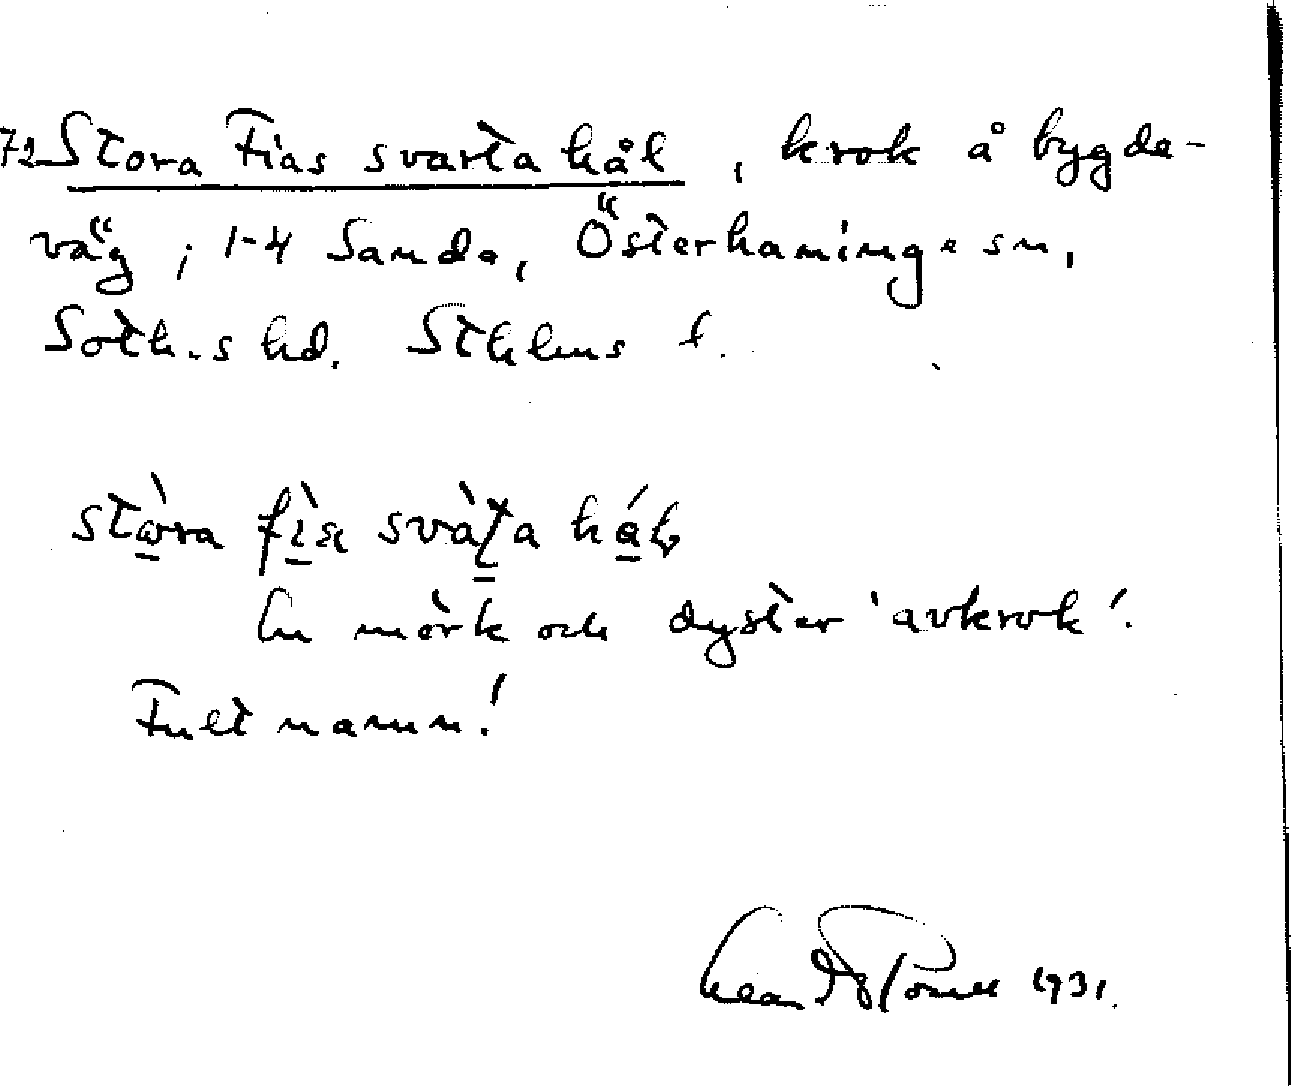 72 Stora Fias svarta hål, krok å bygde-
väg, 1-4 Sanda, Österhaninge sn,
Soth.s hd. Sthlms l.
stὼra fìa svàʈa hål
En mörk och dyster 'avkrok'.
Fult namn!
1931.